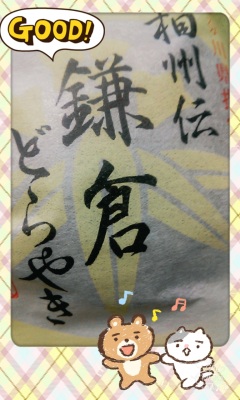 GOOD!
相州伝
鎌倉
どらやき